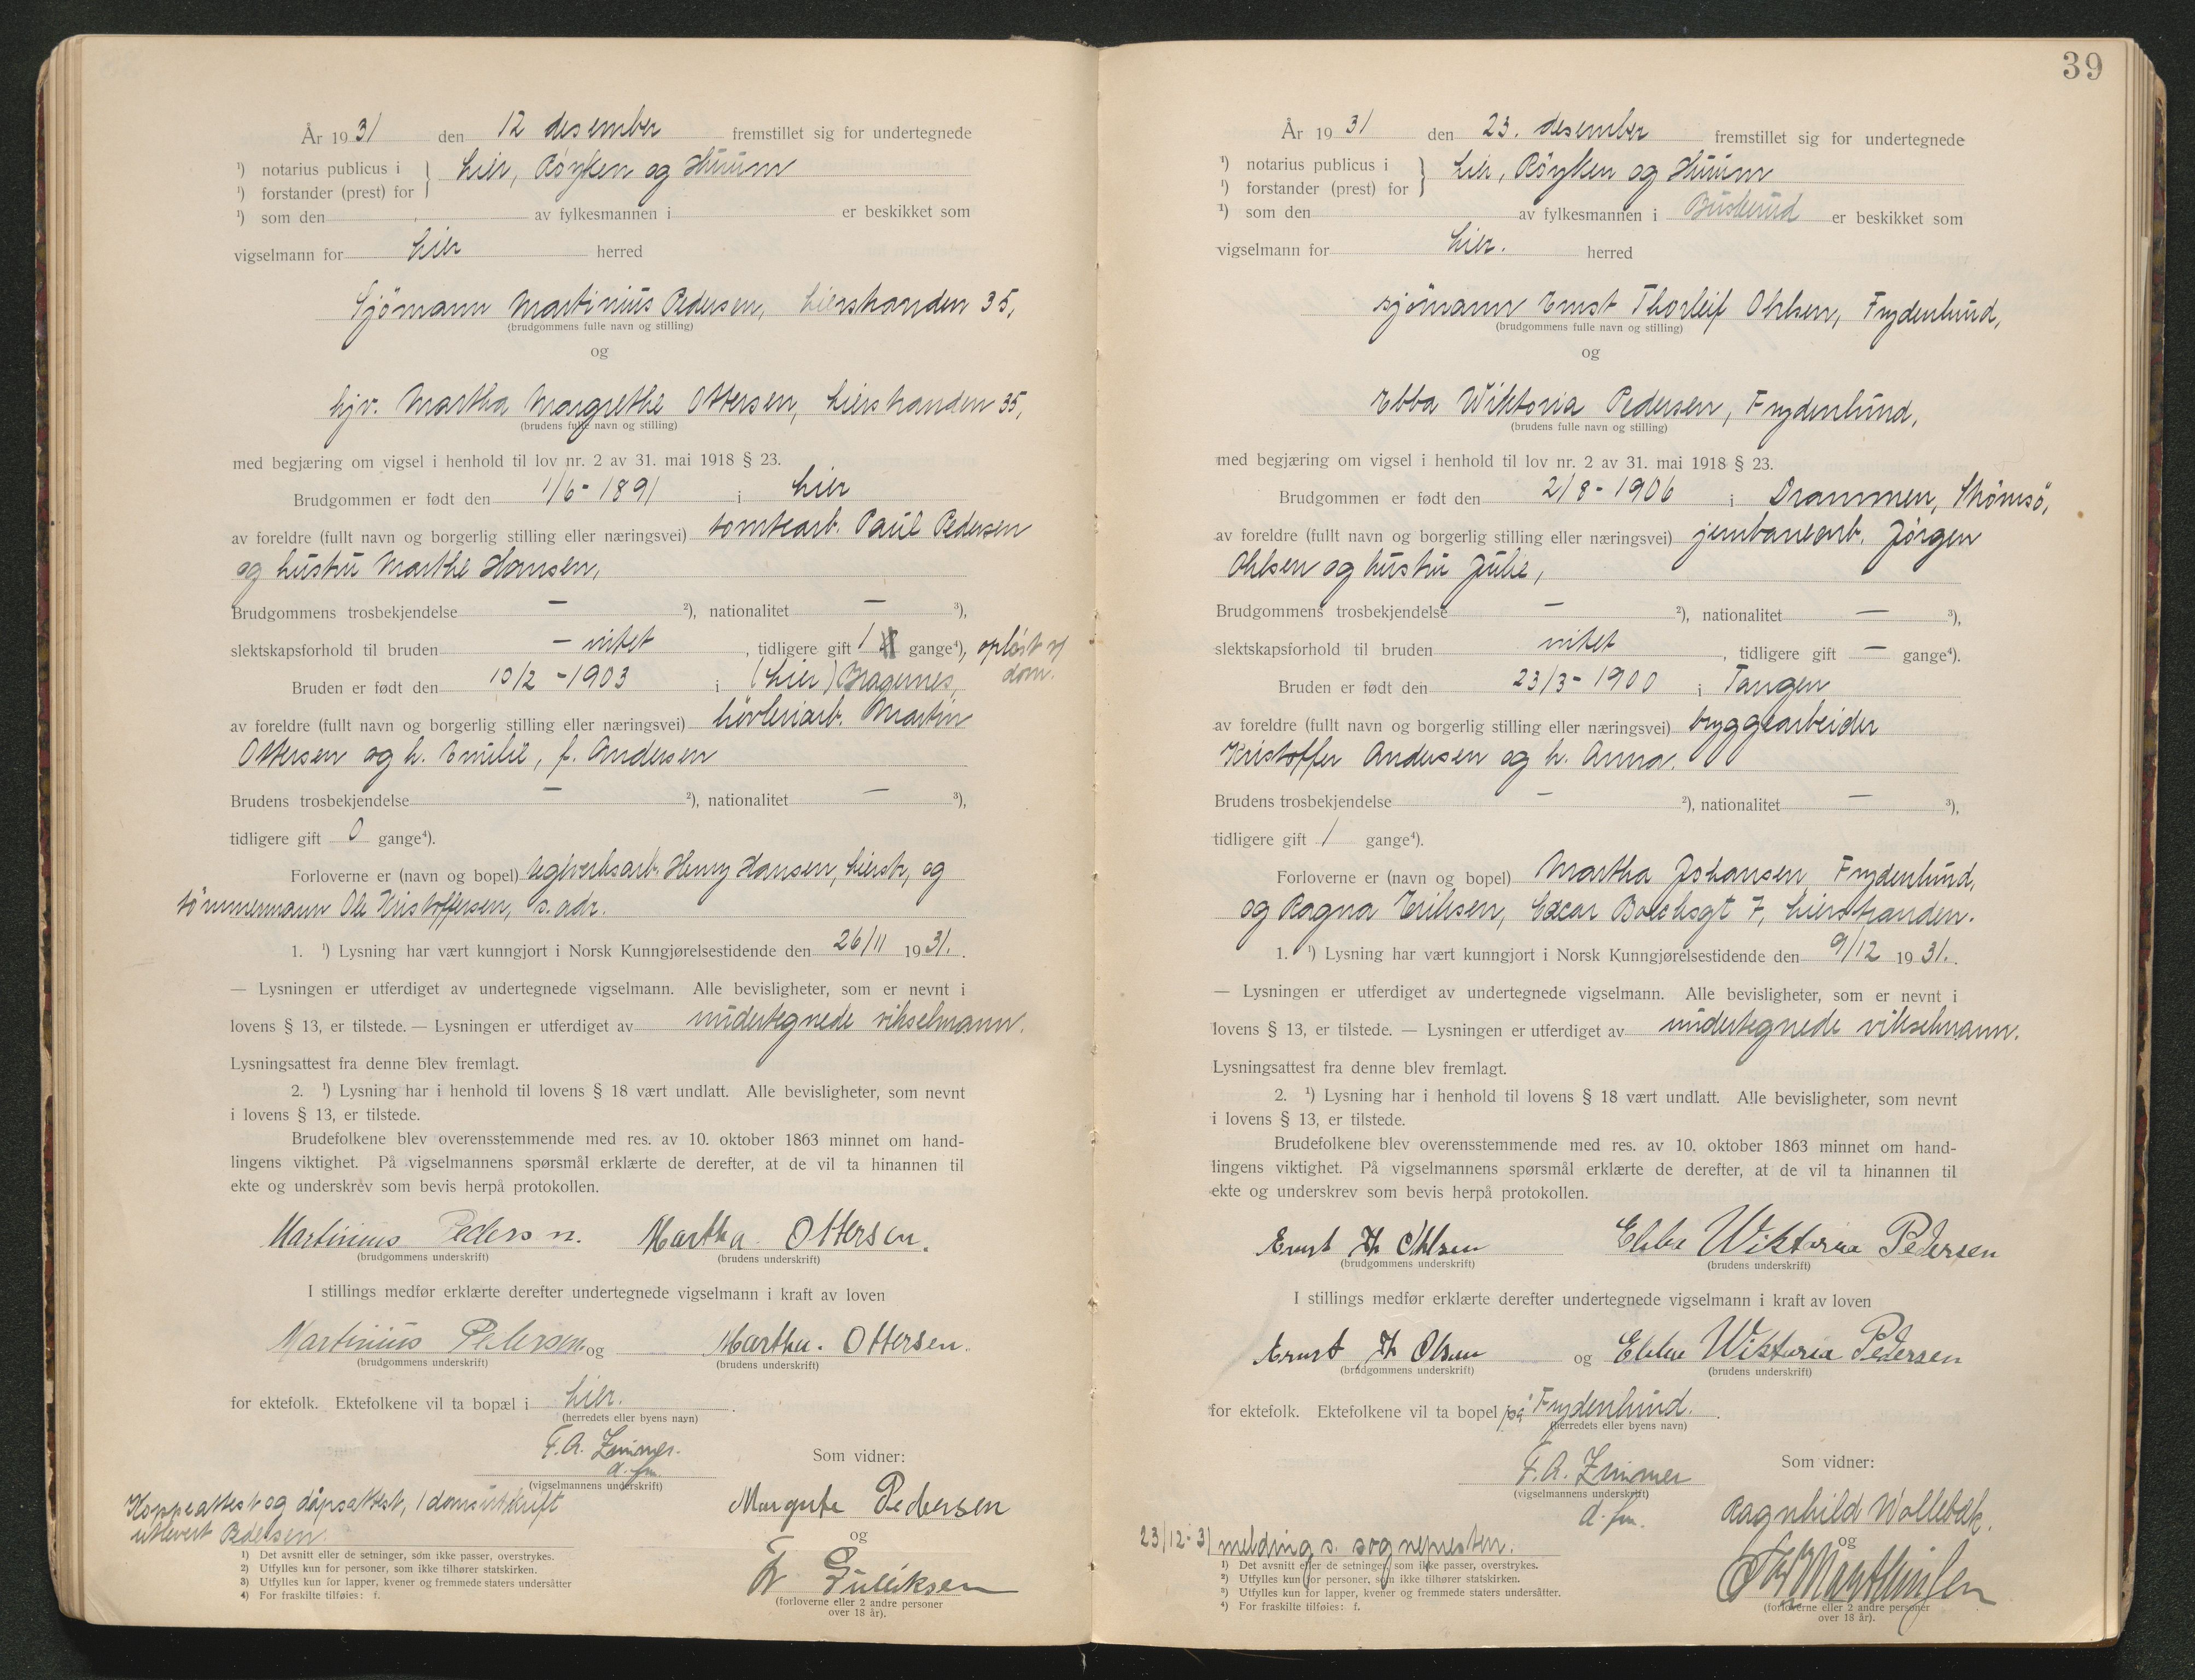 År 1931 den 12 desember fremstillet sig for undertegnede
¹) notarius publicus i } Lier, Røyken og Hurum
¹) forstander (prest) for
¹) som den av fylkesmannen i er beskikket som
vigselmann for Lier herred
Sjömann Martinius Pedersen, Lierstranden 35,
(brudgommens fulle navn og stilling)
og
hjv. Martha Margrethe Ottersen, Lierstranden 35,
(brudens fulle navn og stilling)
med begjæring om vigsel i henhold til lov nr. 2 av 31. mai 1918 § 23.
Brudgommen er født den 1/6 - 1891 i Lier
av foreldre (fullt navn og borgerlig stilling eller næringsvei) tomtearb. Paul Pedersen
og hustru Marthe Hansen,
Brudgommens trosbekjendelse — ²), nationalitet — ³),
slektskapsforhold til bruden — intet, tidligere gift 1 gange⁴), opløst v/
dom.
Bruden er født den 10/2 - 1903 i (Lier) Bragernes,
av foreldre (fullt navn og borgerlig stilling eller næringsvei) høvleriarb. Martin
Ottersen og h. Emilie, f. Andersen
Brudens trosbekjendelse — ²), nationalitet — ³),
tidligere gift 0 gange⁴).
Forloverne er (navn og bopel) teglverksarb. Henry Hansen, Lierstr, og
tömmermann Ole Kristoffersen, s. adr.
1. ¹) Lysning har vært kunngjort i Norsk Kunngjørelsestidende den 26/11 1931.
— Lysningen er utferdiget av undertegnede vigselmann. Alle bevisligheter, som er nevnt i
lovens § 13, er tilstede. — Lysningen er utferdiget av undertegnede vikselmann.
Lysningsattest fra denne blev fremlagt.
2. ¹) Lysning har i henhold til lovens § 18 vært undlatt. Alle bevisligheter, som nevnt
i lovens § 13, er tilstede.
Brudefolkene blev overensstemmende med res. av 10. oktober 1863 minnet om hand-
lingens viktighet. På vigselmannens spørsmål erklærte de derefter, at de vil ta hinannen til
ekte og underskrev som bevis herpå protokollen.
Martinius Pedersen. Martha Ottersen.
(brudgommens underskrift) (brudens underskrift)
I stillings medfør erklærte derefter undertegnede vigselmann i kraft av loven
Martinius Pedersen og Martha. Ottersen.
(brudgommens underskrift) (brudens underskrift)
for ektefolk. Ektefolkene vil ta bopæl i Lier.
(herredets eller byens navn)
F.A. Zimmer.
d. fm.
(vigselmannens underskrift)
Som vidner:
Koppeattest og dåpsattest, 1 domsutskrift
utlevert Pedersen.
Margrete Pedersen
og
Fr Guliksen
(forloverne eller 2 andre personer
over 18 år).
1) Det avsnitt eller de setninger, som ikke passer, overstrykes.
2) Utfylles kun for personer, som ikke tilhører statskirken.
3) Utfylles kun for lapper, kvener og fremmede staters undersåtter
4) For fraskilte tilføies: f.
39
År 1931 den 23. desember fremstillet sig for undertegnede
¹) notarius publicus i } Lier, Röyken og Hurum
¹) forstander (prest) for
¹) som den av fylkesmannen i Buskerud er beskikket som
vigselmann for Lier. herred
sjömann Ernst Thorleif Ohlsen, Frydenlund,
(brudgommens fulle navn og stilling)
og
Ebba Wiktoria Pedersen, Frydenlund,
(brudens fulle navn og stilling)
med begjæring om vigsel i henhold til lov nr. 2 av 31. mai 1918 § 23.
Brudgommen er født den 2/8 - 1906 i Drammen, Strømsö,
av foreldre (fullt navn og borgerlig stilling eller næringsvei) jernbanearb. Jörgen
Ohlsen og hustru Julie,
Brudgommens trosbekjendelse — ²), nationalitet — ³),
slektskapsforhold til bruden intet, tidligere gift — gange⁴).
Bruden er født den 23/3 - 1900 i Tangen
av foreldre (fullt navn og borgerlig stilling eller næringsvei) bryggearbeider
Kristoffer Andersen og h. Anna.
Brudens trosbekjendelse — ²), nationalitet — ³),
tidligere gift 1 gange⁴).
Forloverne er (navn og bopel) Martha Johansen, Frydenlund,
og Ragna Eriksen, Edcar gt 7, Lierstranden.
1. ¹) Lysning har vært kunngjort i Norsk Kunngjørelsestidende den 9/12 1931.
— Lysningen er utferdiget av undertegnede vigselmann. Alle bevisligheter, som er nevnt i
lovens § 13, er tilstede. — Lysningen er utferdiget av undertegnede vikselmann.
Lysningsattest fra denne blev fremlagt.
2. ¹) Lysning har i henhold til lovens § 18 vært undlatt. Alle bevisligheter, som nevnt
i lovens § 13, er tilstede.
Brudefolkene blev overensstemmende med res. av 10. oktober 1863 minnet om hand-
lingens viktighet. På vigselmannens spørsmål erklærte de derefter, at de vil ta hinannen til
ekte og underskrev som bevis herpå protokollen.
Ernst Th Ohlsen Ebba Wiktoria Pedersen
(brudgommens underskrift) (brudens underskrift)
I stillings medfør erklærte derefter undertegnede vigselmann i kraft av loven
Ernst Th Olsen og Ebba Wiktoria Pedersen
(brudgommens underskrift) (brudens underskrift)
for ektefolk. Ektefolkene vil ta bopel på Frydenlund.
(herredets eller byens navn)
F.A. Zimmer
(vigselmannens underskrift)
d. fm.
Som vidner:
Ragnhild Wollebæk.
og
(forloverne eller 2 andre personer
over 18 år).
23/12-31 melding s. sognepresten.
1) Det avsnitt eller de setninger, som ikke passer, overstrykes.
2) Utfylles kun for personer, som ikke tilhører statskirken.
3) Utfylles kun for lapper, kvener og fremmede staters undersåtter.
4) For fraskilte tilføies: f.